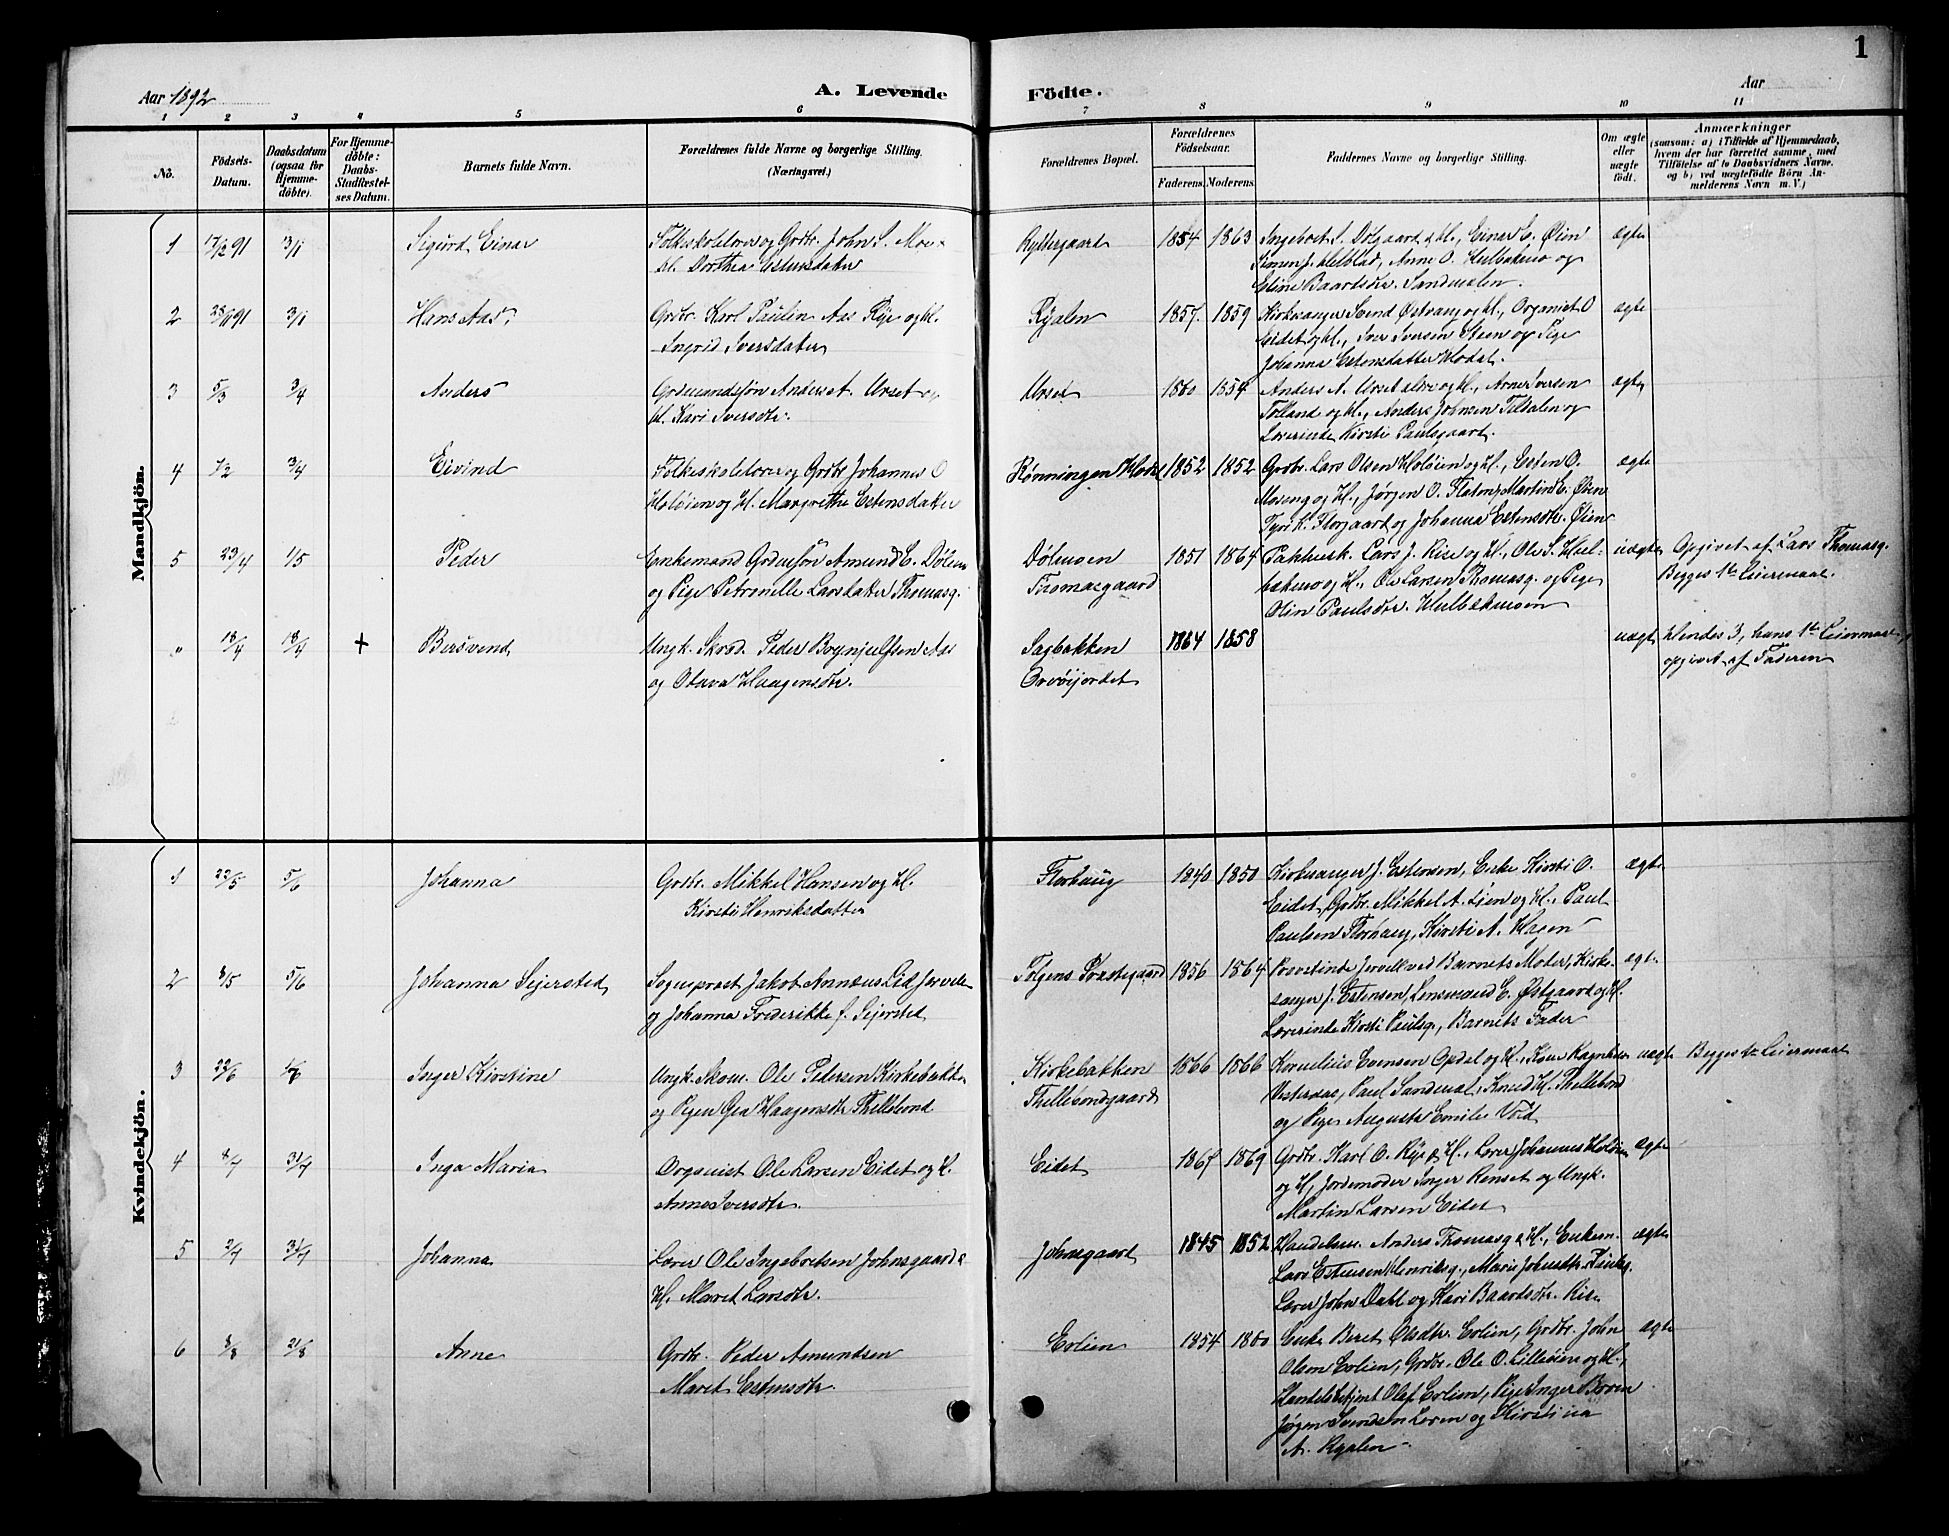 1
Aar 1892
A. Levende
Födte.
Aar
1 2 3 4 5 6 7 8 9 10 11
No.
Födsels-
Datum.
Daabsdatum
(ogsaa for
Hjemme-
döbte).
For Hjemme-
döbte:
Daabs-
Stadfæstel-
ses Datum.
Barnets fulde Navn.
Forældrenes fulde Navne og borgerlige Stilling.
(Næringsvei.)
Forældrenes Bopæl.
Forældrenes
Födselsaar.
Faderens. Moderens.
Faddernes Navne og borgerlige Stilling.
Om ægte
eller
uægte
födt.
Anmærkninger
(saasom: a) i Tilfælde af Hjemmedaab,
hvem der har forrettet samme, med
Tilföielse af to Daabsvidners Navne.
og b) ved uægtefödte Börn An-
melderens Navn m. V.)
Mandkjön.
1 17/12 91 3/1 Sigurd Einar
Folkeskolelærer og Grdbr. John S. Moe
H. Dorthea Estensdatter
Ryttergaard 1854 1863
Ingebret S. Dølgaard & H., Einar E. Øien
Simen J. Helblad, Anne O. Hulbækmo og
Eline Baardsdtr. Sandmælen
ægte
2 28/ 91 3/1 Hans Aas
Grdbr. Karl Paulin Aas Rye og H.
Ingrid Iversdatter
Ryalen 1857. 1859
Kirkesanger Svend Østvang og H., Organist O
Eidet og H., Iver Iversen Steen og Pige
Johanna Estensdatter Hodal.
ægte
3 5/3 3/4 Anders
Grdmandssøn Anders A. Urset og
H. Kari Iversdtr.
Urset 1860 1854
Anders A. Urset ældre og H., Arne Iversen
Tolland og H., Anders Johnsen Teldalen og
Lærerinde Kirsti Paulsgaard.
ægte
4 1/2 3/4 Eivind
Folkeskolelærer og Grdbr Johannes O
Holøien og H. Margrethe Estensdatter
Rønningen Hodal 1852 1852
Grdbr. Lars Olsen Holøien og H., Esten O.
Moseng og H., Jørgen O. Flaten, Martin E. Øien
Tyri K. Florgaard og Johanna Estensdtr. Øien
ægte
5 23/4 1/5 Peder
Enkemand Grdmsøn Amund E. Dølmo
og Pige Petronelle Larsdatter Thomasg.
Dølmoen
Thomasgaard
1851 1864
Pakhusk. Lars J. Rise og H., Ole S. Hul-
bækmo og H., Ole Larsen Thomasg. og Pige
Olin Paulsdtr. Hulbækmoen
uægte
Opgivet af Lars Thomasg.
Begges 1te Leiermaal.
" 18/4 18/4 + Bersvend
Ungk. Skræd. Peder Brynjulfsen Aas
og Olava Haagensdtr.
Sagbakken
Orvøijordet
1864 1858
uægte
Hendes 3, hans 1te Leiermaal,
opgivet af Faderen
Kvindekjön.
1 22/5 5/6 Johanna
Grdbr. Mikkel Hansen og H.
Kirsti Henriksdatter
Florhaug 1840 1850
Kirkesanger J. Estensen, Enke Kirsti O.
Eidet, Grdbr. Mikkel A. Lien og H., Paul
Paulsen Florhaug, Kirsti A. Hagen
ægte
2 3/5 5/6 Johanna Sejersted
Sogneprest Jakob Annæus Lid Jervell
og Johanna Frederikke f. Sejersted
Tolgens Præstegaard 1856 1864
Provstinde Jervell ved Barnets Moder, Kirke-
sanger J. Estensen, Lensmand E. Østgaard og H.
Lærerinde Kirsti Paulsg., Barnets Fader
ægte
3 22/6 Inger Kirstine
Ungk. Skom. Ole Pedersen Kirkebækken
og Pigen Gea Haagensdtr Thellebond
Kirkebækken
Thellebondgaard
1866 1866
Kornelius Evensen Opdal og H., Kone Ragnhild
Vesteraas, Paul Sandmæl, Knud H. Thellebond
og Pige Augusta Emilie Vold
uægte
Begges 1te Leiermaal
4 8/7 31/7 Inga Maria
Organist Ole Larsen Eidet og H.
Anne Iversdtr.
Eidet 1867 1869
Grdbr. Karl O. Rye & H., Lærer Johannes Holøien
og H., Jordemoder Inger Renset og Ungk.
Martin Larsen Eidet
ægte
5 2/7 31/7 Johanna
Lærer Ole Ingebretsen Johnsgaard &
H. Maret Larsdtr.
Johnsgaard 1845 1852
Handelsm. Anders Thomasg & H., Enkem.
Lars Estensen Henriksg., Marie Johnsdtr.
Lærer John Dahl og Kari Baardsdtr. Rise
ægte
6 3/8 21/8 Anne
Grdbr. Peder Amundsen
Maret Estensdtr.
Erlien 1854 1860
Enke Beret Olsdtr. Erlien, Grdbr. John
Olsen Erlien, Grdbr. Ole O. Lilleøien og H.,
Handelsbetjent Olaf Erlien, Pige Inger Broen
Jørgen Svendsen Løren og Kirstina
A. Ryalen
ægte